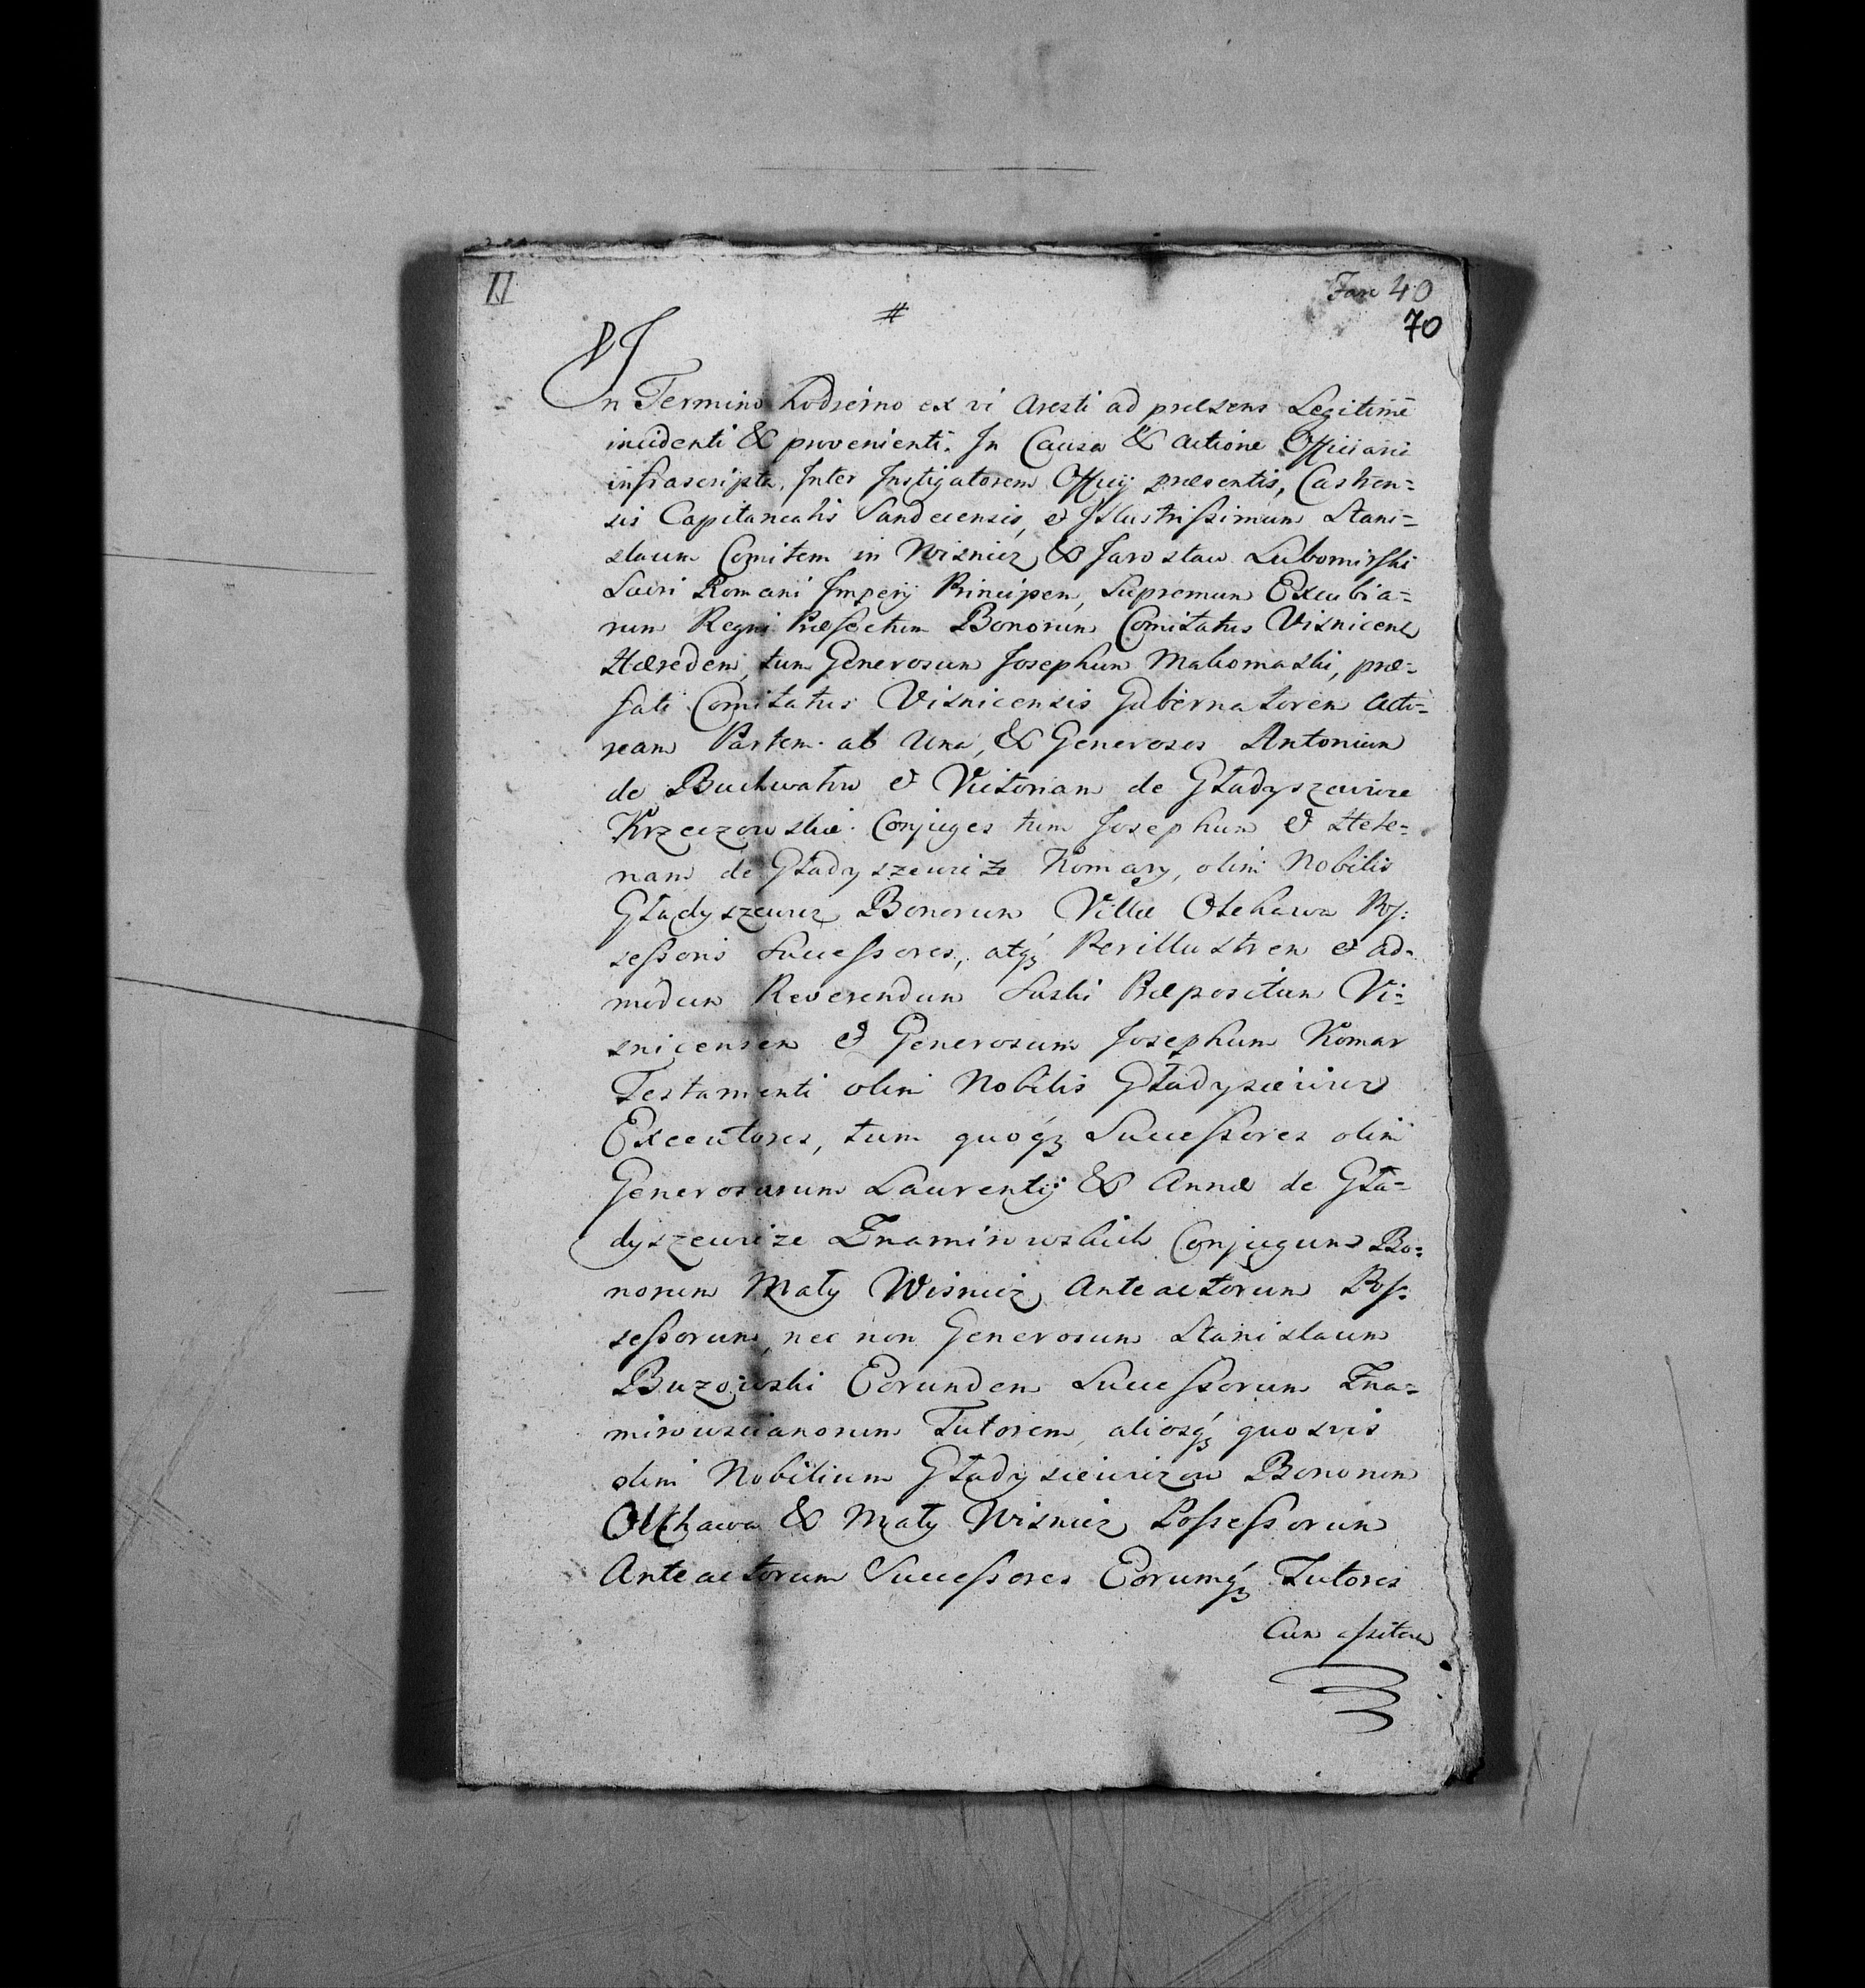 II
#
Fasc 40
70
In Termino hodierno ex vi Aresti ad præsens Legitime
incidenti & provenienti. In Causa & Actione Officiani
infrascripta, Inter Instigatorem Officij præsentis, Castren=
sis Capitanealis Sandecensis, & Illustrissimum Stani=
slaum Comitem in Wisnicz & Jarosław Lubomirski
Sacri Romani Imperij Principem, Supremum Excubia=
rum Regni Præfectum Bonorum Comitatus Visnicens
Hæredem, tum Generosum Josephum Makomaski, præ=
fati Comitatus Visnicensis Gubernatorem Acto=
ream Partem ab Una, & Generosos Antonium
de Buchwałow & Victoriam de Gładyszewicze
Krzeczowskie Conjuges tum Josephum & Hele=
nam de Gładyszewicze Komary, olim Nobilis
Gładyszewicz Bonorum Villæ Olchawa Pos:
sessoris Successores, atq; Perillustrem & ad=
modum Reverendum Suski Præpositum Vi=
snicensem & Generosum Josephum Komar
Testamenti olim Nobilis Gładysiewicz
Executores, tum quoq; Successores olim
Generosorum Laurentij & Annæ de Gła=
dyszewicze Znamirowskich Conjugum Bo=
norum Mały Wisnicz Anteactorum Pos=
sessorum, nec non Generosum Stanislaum
Buzowski Eorundem Successorum Zna=
mirowscianorum Tutorem, aliosq; quosvis
olim Nobilium Gładysiewiczow Bonorum
Olchawa & Mały Wisnicz Possessorum
Anteactorum Successores Eorumq; Tutores
Cum assiten